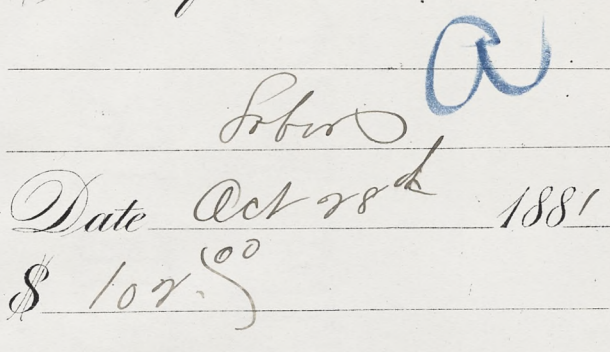 a
Labor
Date Oct 28th 1881
$ 102.00